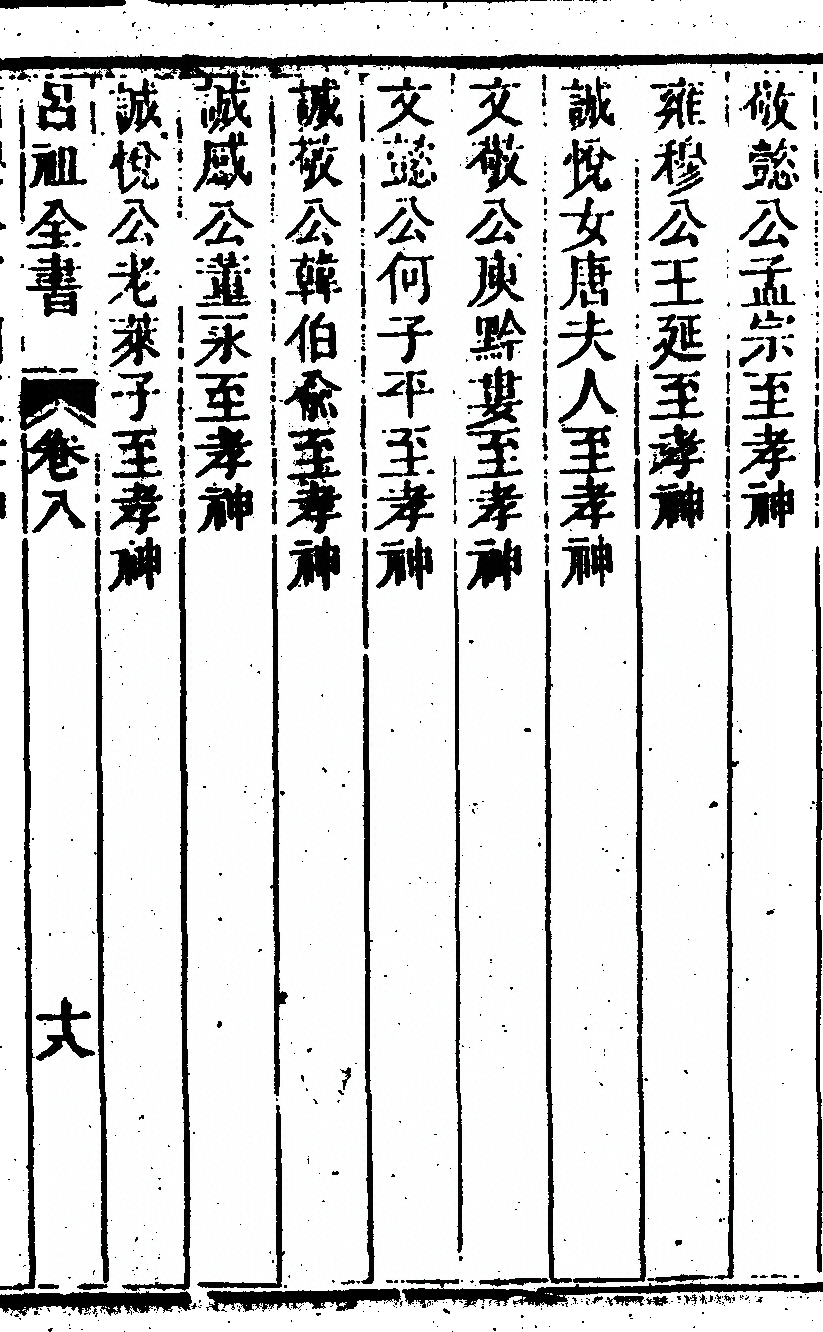 攸懿公孟宗至孝神
雍穆公王延至孝神
誠悅女唐夫人至孝神
文敬公庾黔婁至孝神
文懿公何子平至孝神
誠敬公韓伯俞至孝神
誠感公董永至孝神
誠悅公老萊子至孝神
呂祖全書 卷八 十八